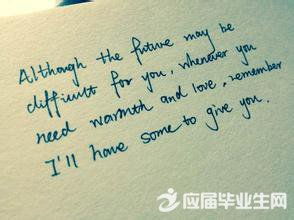 Although the future may be
difficult for you, whenever you
need warmth and love, remember
I'll have some to give you.
应届毕业生网